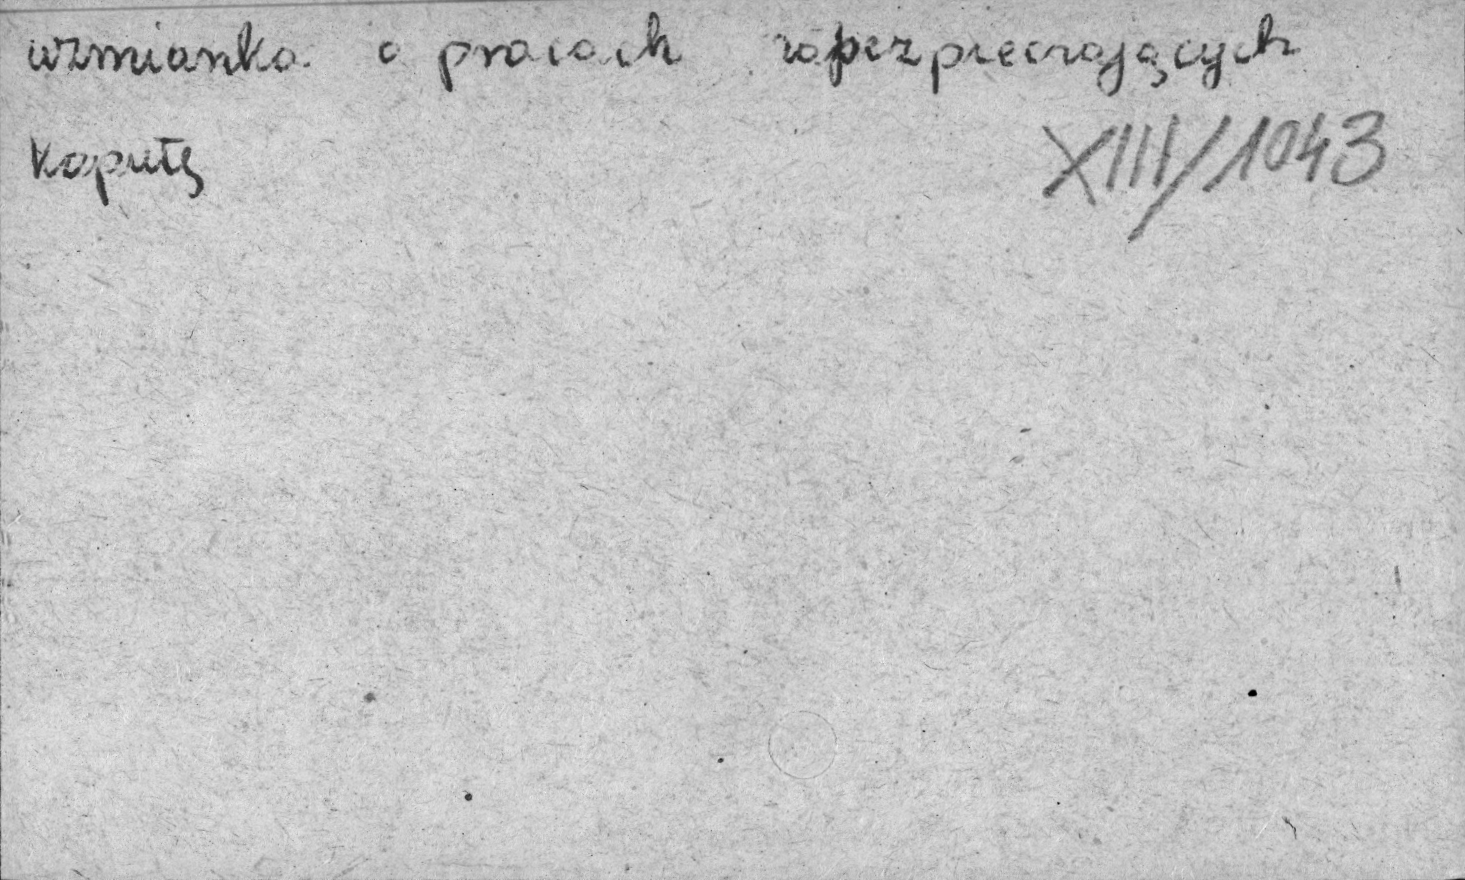 wzmianka o pracach zabezpieczających
kaputę
XIII/1043